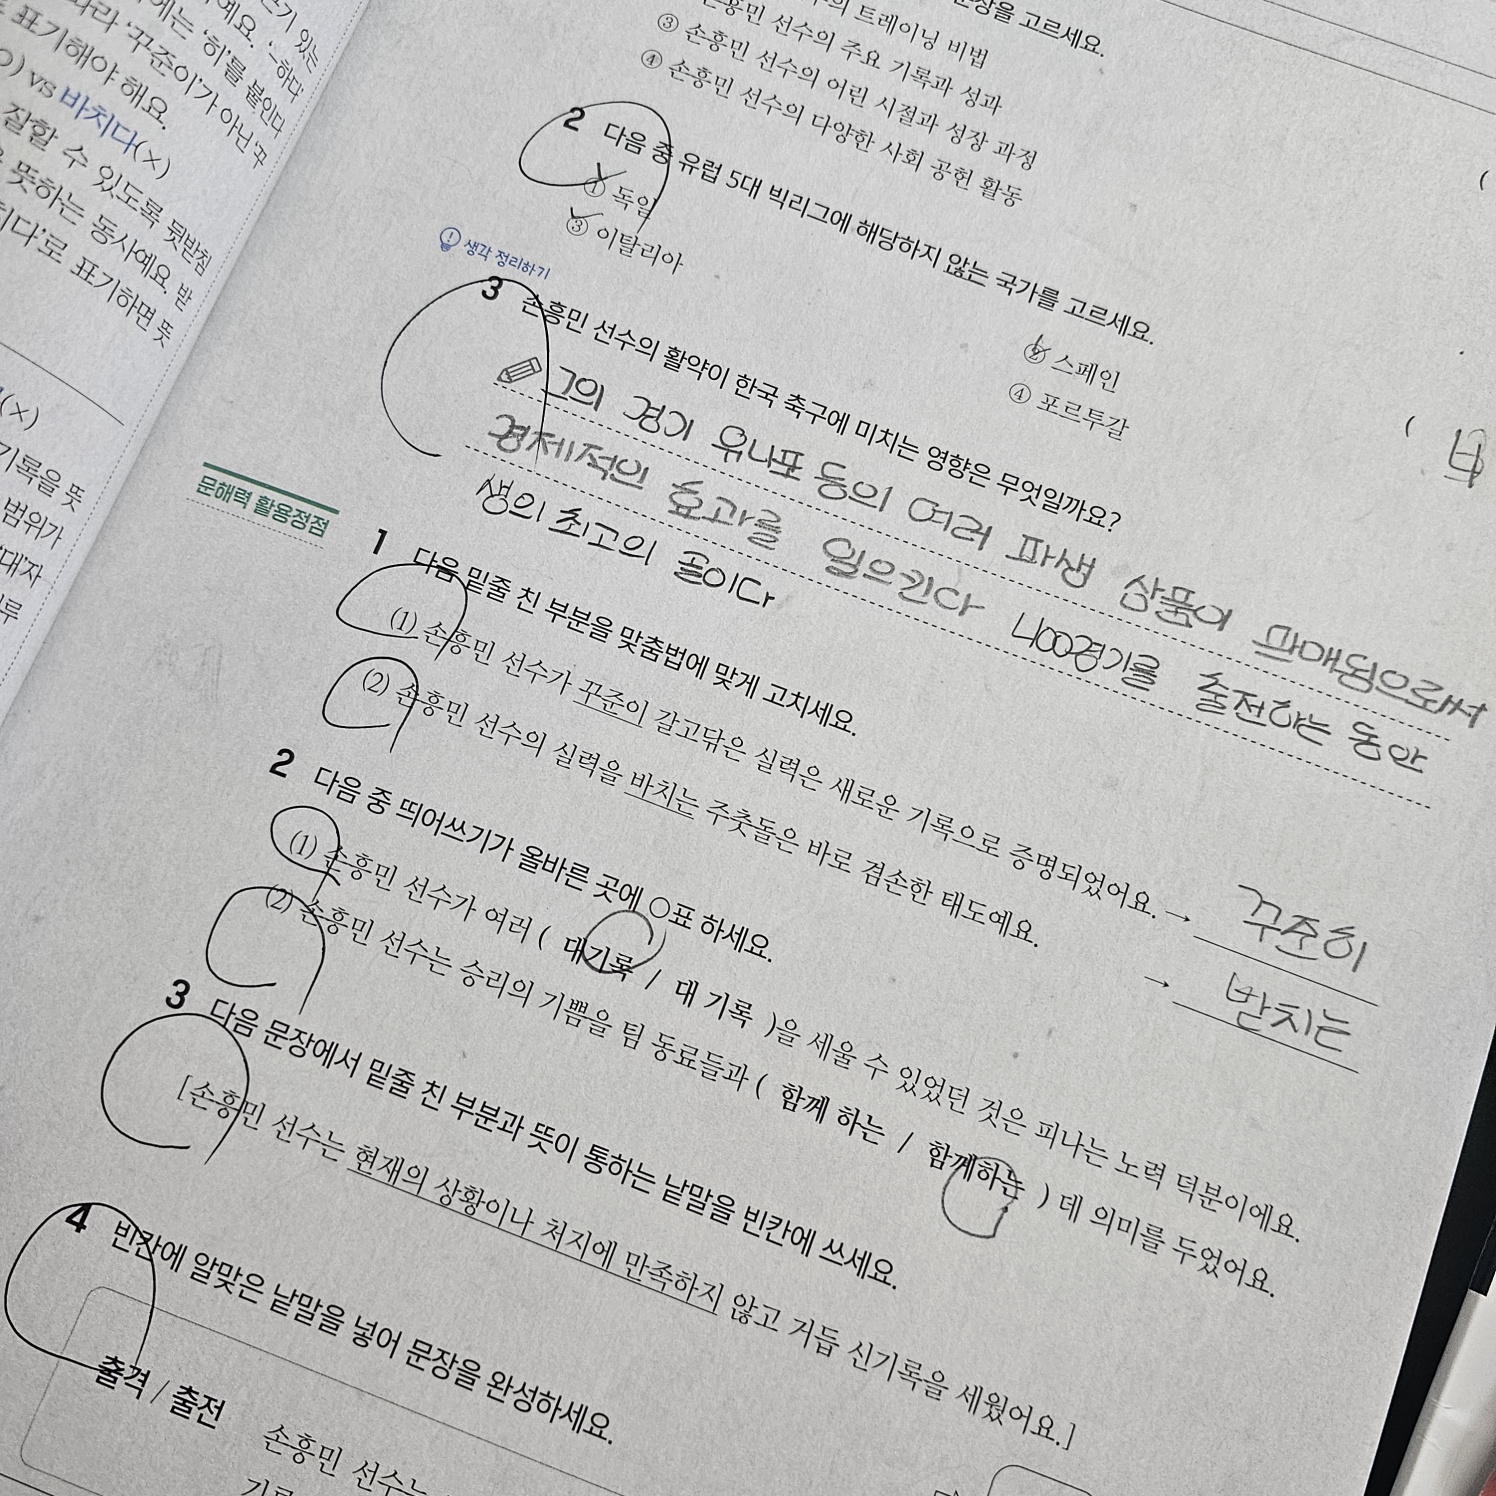 쓰기 있는
예요. '-하다
에는 '히'를 붙인다
따라 '꾸준이'가 아닌 '꾸
표기해야 해요.
vs 바치다(×)
잘할 수 있도록 뒷받침
뜻하는 동사예요. 받
치다'로 표기하면 뜻
(×)
기록을 뜻
범위가
'대'자
문장을 고르세요.
트레이닝 비법
손흥민 선수의 주요 기록과 성과
③ 손흥민 선수의 어린 시절과 성장 과정
④ 손흥민 선수의 다양한 사회 공헌 활동
2 다음 중 유럽 5대 빅리그에 해당하지 않는 국가를 고르세요.
① 독일 ② 스페인
③ 이탈리아 ④ 포르투갈
( 4
생각 정리하기
3 손흥민 선수의 활약이 한국 축구에 미치는 영향은 무엇일까요?
그의 경기 유니폼 등의 여러 파생 상품이 판매됨으로써
경제적인 효과를 일으킨다 경기를 출전하는 동안
생의 최고의 골이다
문해력 활용정점
1 다음 밑줄 친 부분을 맞춤법에 맞게 고치세요.
(1) 손흥민 선수가 꾸준이 갈고닦은 실력은 새로운 기록으로 증명되었어요. → 꾸준히
(2) 손흥민 선수의 실력을 바치는 주춧돌은 바로 겸손한 태도예요. → 받치는
2 다음 중 띄어쓰기가 올바른 곳에 ○표 하세요.
(1) 손흥민 선수가 여러 ( 대기록 / 대 기록 )을 세울 수 있었던 것은 피나는 노력 덕분이에요.
(2) 손흥민 선수는 승리의 기쁨을 팀 동료들과 ( 함께 하는 / 함께하는 ) 데 의미를 두었어요.
3 다음 문장에서 밑줄 친 부분과 뜻이 통하는 낱말을 빈칸에 쓰세요.
[손흥민 선수는 현재의 상황이나 처지에 만족하지 않고 거듭 신기록을 세웠어요.]
4 빈칸에 알맞은 낱말을 넣어 문장을 완성하세요.
출격 / 출전
손흥민 선수는